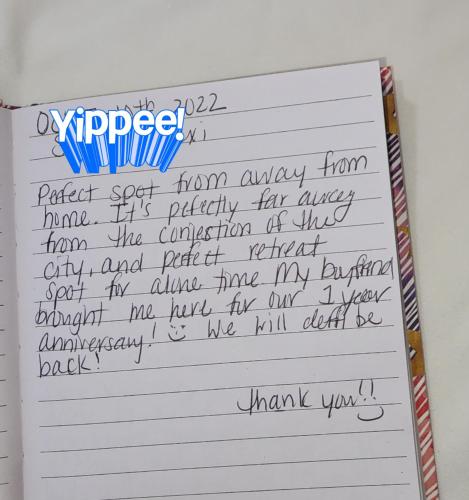 10th 2022
Yippee!
Perfect spot from away from
home. It's pefectly far away
from the conjestion of the
city, and perfect retreat
spot for alone time My boyfriend
brought me here for our 1 year
anniversary! We will deff be
back!
Thank you!!